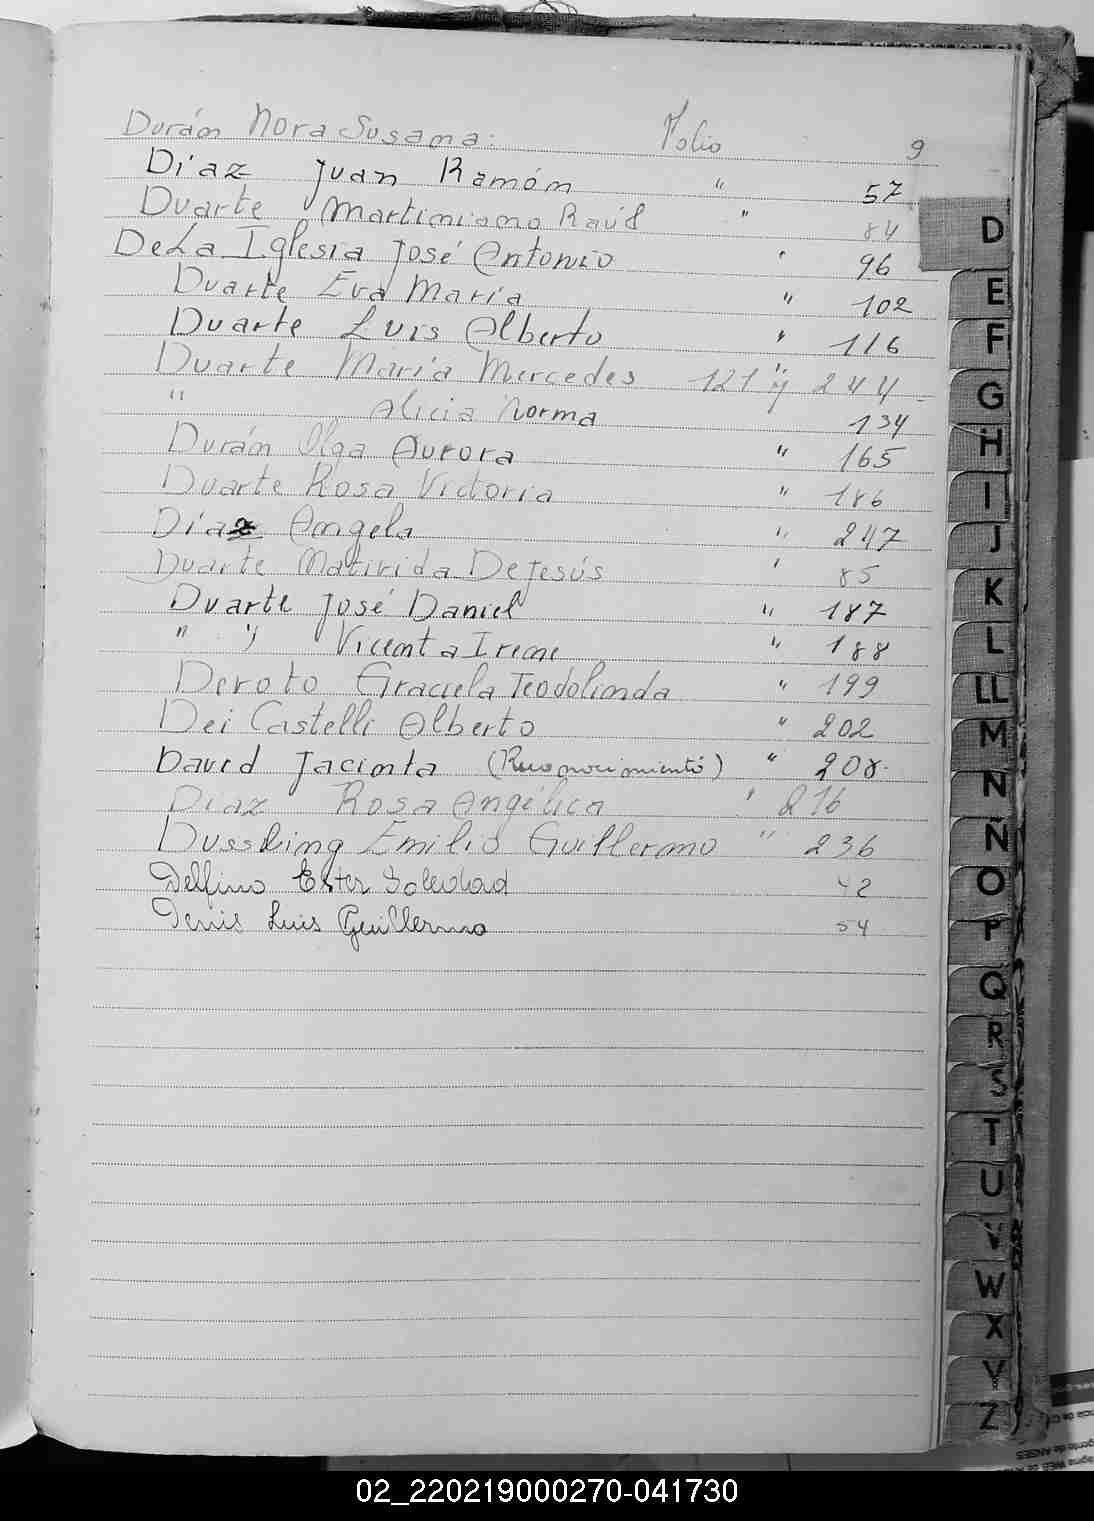 Durán Nora Susana: Folio 9
Díaz Juan Ramón " 57
Duarte Martiniano Raúl " 84
De La Iglesia José Antonio " 96
Duarte Eva María " 102
Duarte Luis Alberto " 116
Duarte María Mercedes 121 " y 244
" Alicia Norma 134
Durán Olga Aurora " 165
Duarte Rosa Victoria " 186
Díaz Angela " 247
Duarte Matirida De Jesús " 85
Duarte José Daniel " 187
" " Vicenta Irene " 188
Deroto Graciela Teodolinda " 199
Dei Castelli Alberto " 202
David Jacinta (Reconocimiento) " 208.
Díaz Rosa Angélica " 216
Dussling Emilio Guillermo " 236
Delfino Ester Soledad 42
Denis Luis Guillermo 54
D
E
F
G
H
I
J
K
L
LL
M
N
Ñ
O
P
Q
R
S
T
U
V
W
X
Y
Z
02_220219000270-041730